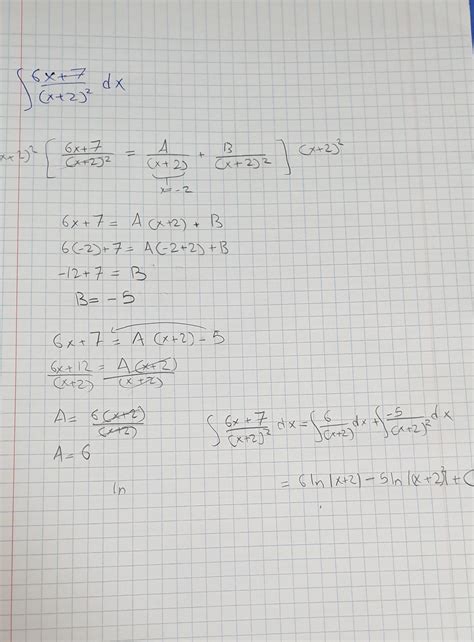 ∫ 6x+7/(x+2)² dx
x+2)² [ 6x+7/(x+2)² = A/(x+2) + B/(x+2)² ] (x+2)²
x=-2
6x+7 = A(x+2) + B
6(-2)+7 = A(-2+2)+B
-12+7 = B
B = -5
6x+7 = A(x+2) -5
6x+12/(x+2) = A(x+2)/(x+2)
A = 6(x+2)/(x+2)
A = 6
∫ 6x+7/(x+2)² dx = ∫ 6/(x+2) dx + ∫ -5/(x+2)² dx
= 6 ln |x+2| - 5 ln |(x+2)²| + C
ln